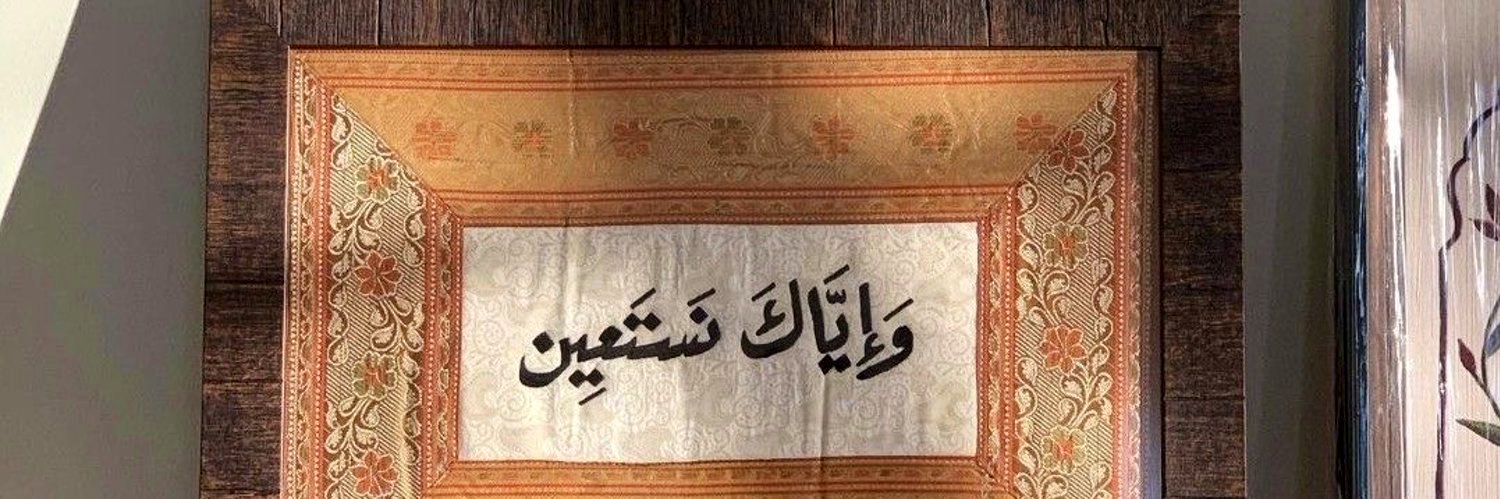 وَإِيَّاكَ نَسَتَعِين